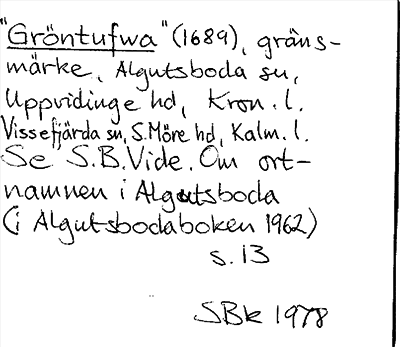 "Gröntufwa" (1689), gräns-
märke, Algutsboda sn,
Uppvidinge hd, Kron. l.
Vissefjärda sn, S. Möre hd, Kalm. l.
Se S.B. Vide. Om ort-
namnen i Algutsboda
(i Algutsbodaboken 1962)
s. 13
SBk 1978